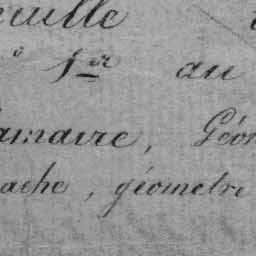 euille
1er au
amaire, Géom
ache, géometre